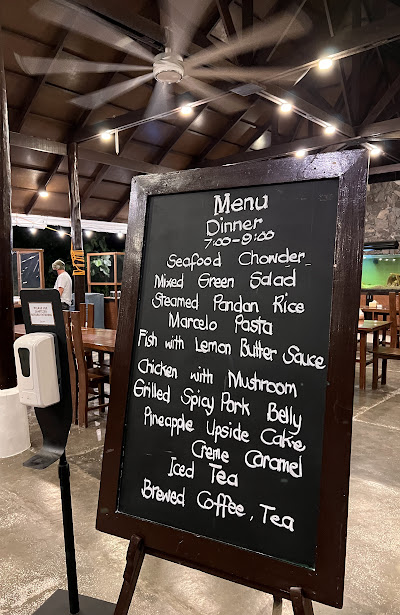 Menu
Dinner
7:00-9:00
Seafood Chowder
Mixed Green Salad
Steamed Pandan Rice
Marcelo Pasta
Fish with Lemon Butter Sauce
Chicken with Mushroom
Grilled Spicy Pork Belly
Pineapple Upside Cake
Creme Caramel
Iced Tea
Brewed Coffee, Tea